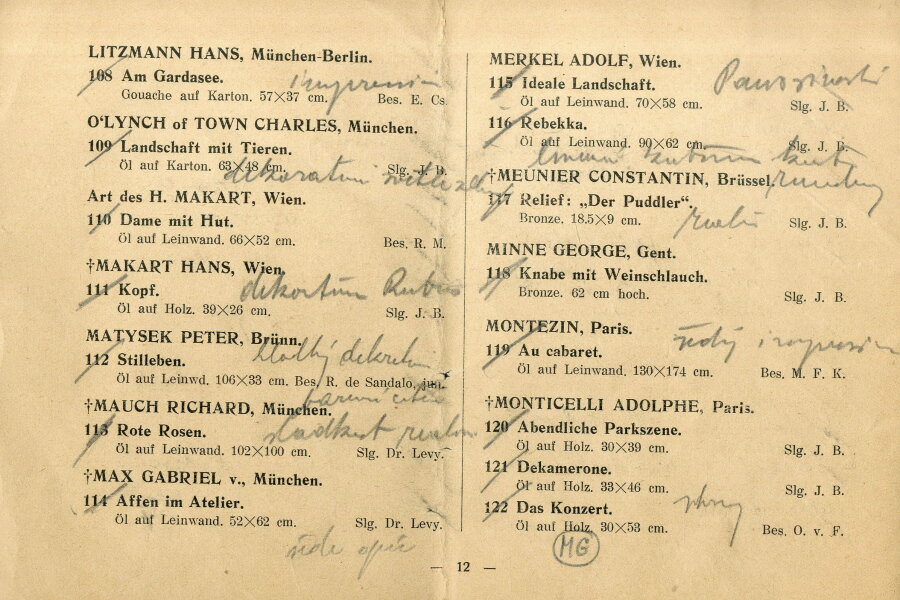 LITZMANN HANS, München-Berlin.
108 Am Gardasee.
Gouache auf Karton. 57×37 cm. Bes. E. Cs.
O'LYNCH of TOWN CHARLES, München.
109 Landschaft mit Tieren.
Öl auf Karton. 63×48 cm. Slg. J. B.
Art des H. MAKART, Wien.
110 Dame mit Hut.
Öl auf Leinwand. 66×52 cm. Bes. R. M.
†MAKART HANS, Wien.
111 Kopf.
Öl auf Holz. 39×26 cm. Slg. J. B.
MATYSEK PETER, Brünn.
112 Stilleben.
Öl auf Leinwd. 106×33 cm. Bes. R. de Sandalo, jun.
†MAUCH RICHARD, München.
113 Rote Rosen.
Öl auf Leinwand. 102×100 cm. Slg. Dr. Levy.
†MAX GABRIEL v., München.
114 Affen im Atelier.
Öl auf Leinwand. 52×62 cm. Slg. Dr. Levy.
MERKEL ADOLF, Wien.
115 Ideale Landschaft.
Öl auf Leinwand. 70×58 cm. Slg. J. B.
116 Rebekka.
Öl auf Leinwand. 90×62 cm. Slg. J. B.
†MEUNIER CONSTANTIN, Brüssel.
117 Relief: „Der Puddler“.
Bronze. 18.5×9 cm. Slg. J. B.
MINNE GEORGE, Gent.
118 Knabe mit Weinschlauch.
Bronze. 62 cm hoch. Slg. J. B.
MONTEZIN, Paris.
119 Au cabaret.
Öl auf Leinwand. 130×174 cm. Bes. M. F. K.
†MONTICELLI ADOLPHE, Paris.
120 Abendliche Parkszene.
Öl auf Holz. 30×39 cm. Slg. J. B.
121 Dekamerone.
Öl auf Holz. 33×46 cm. Slg. J. B.
122 Das Konzert.
Öl auf Holz. 30×53 cm. Bes. O. v. F.
MG
— 12 —